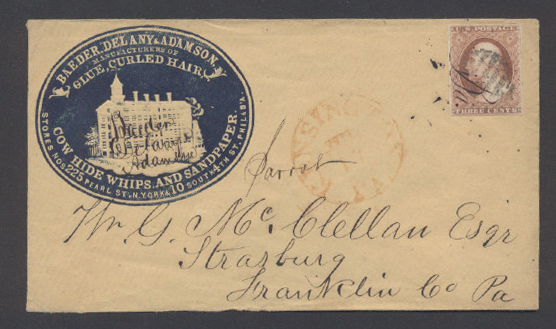 BAEDER, DELANY & ADAMSON,
MANUFACTURERS OF
GLUE, CURLED HAIR,
COW HIDE WHIPS, AND SANDPAPER.
STORES NOS 225 PEARL ST. N.YORK & 10 SOUTH 4TH ST. PHILADA.
Baeder
Delany &
Adamson
U.S. POSTAGE
THREE CENTS
Wm. G. Mc. Clellan Esqr
Strasburg
Franklin Co Pa